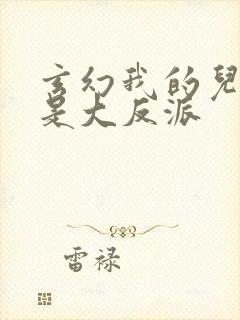 玄幻我的兒
是大反派
雷祿